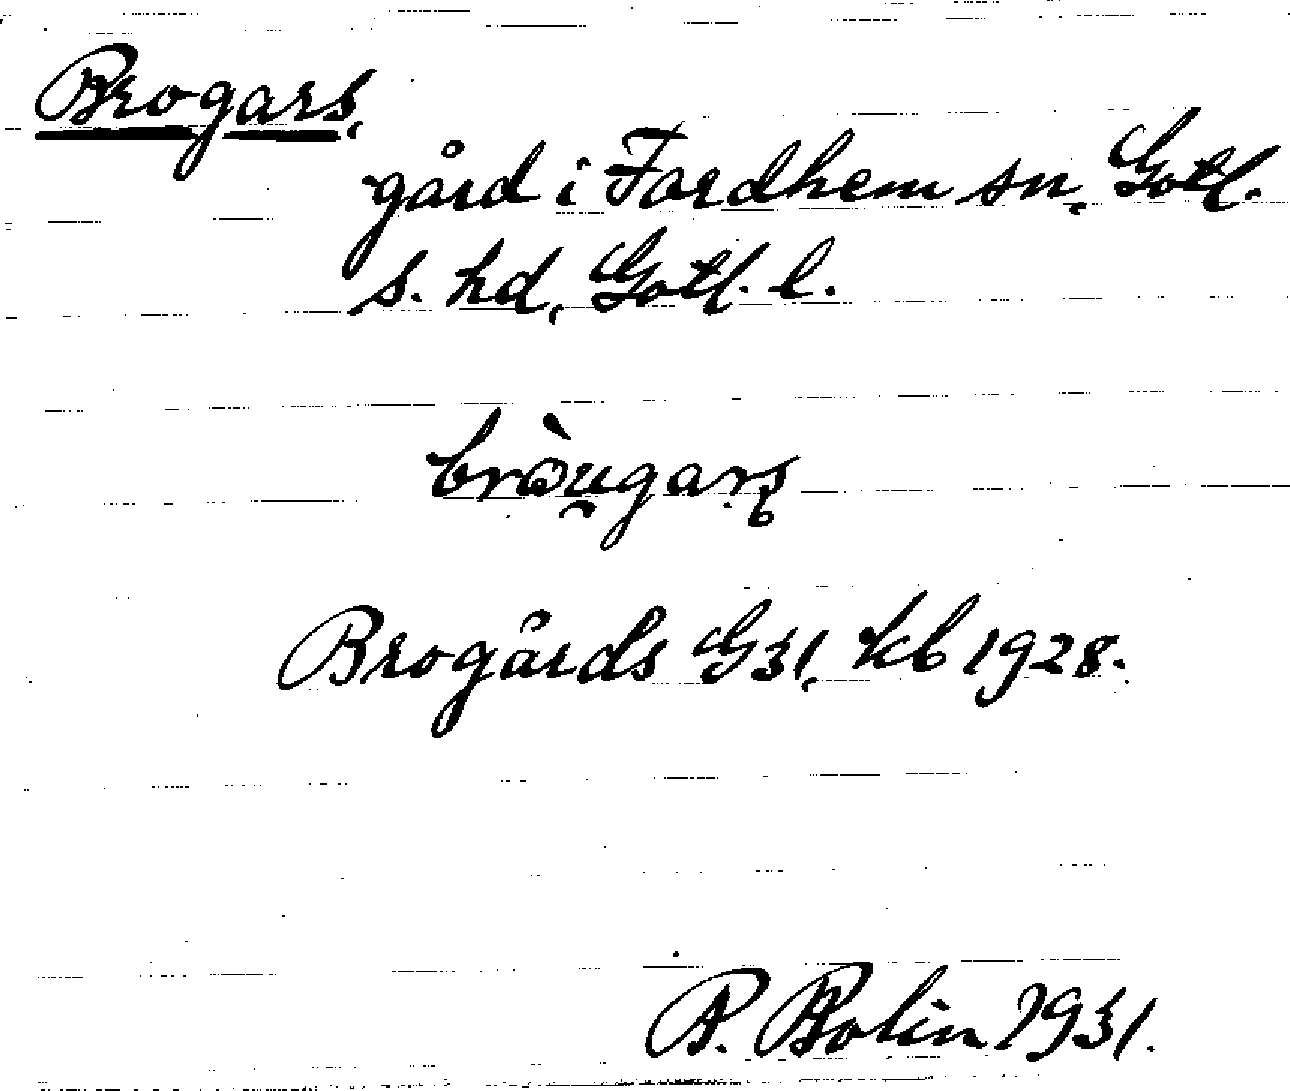 Brogars,
gård i Fardhem sn, Gotl.
s. hd, Gotl. l.
bròu̯garş
Brogårds G31, kb 1928.
A. Bolin 1931.